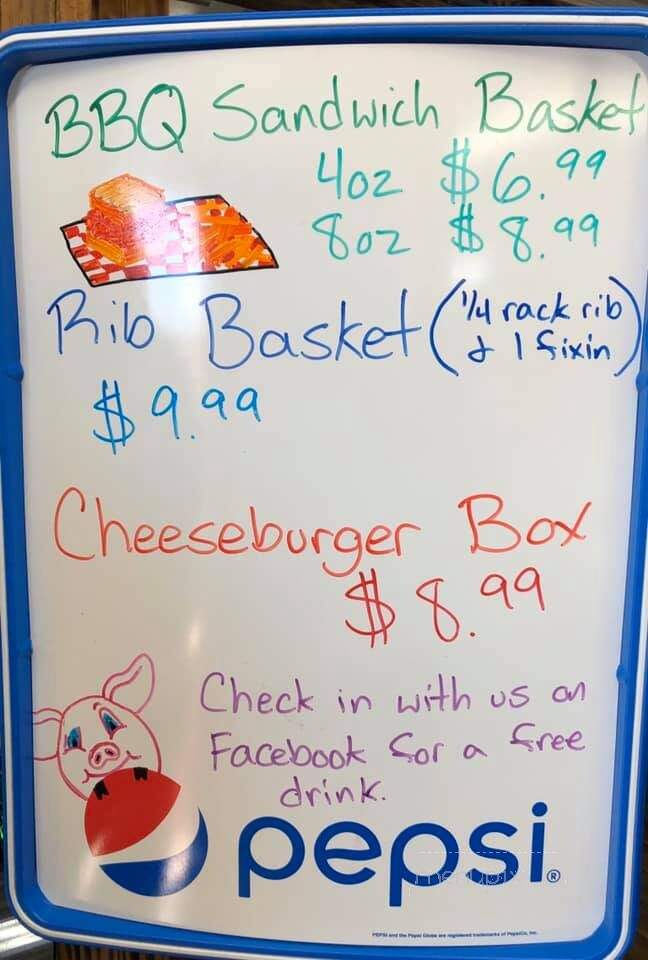 BBQ Sandwich Basket
4oz $6.99
8oz $8.99
Rib Basket (1/4 rack rib & 1 fixin)
$9.99
Cheeseburger Box
$8.99
Check in with us on
Facebook for a free
drink.
pepsi®
PEPSI and the Pepsi Globe are registered trademarks of PepsiCo, Inc.